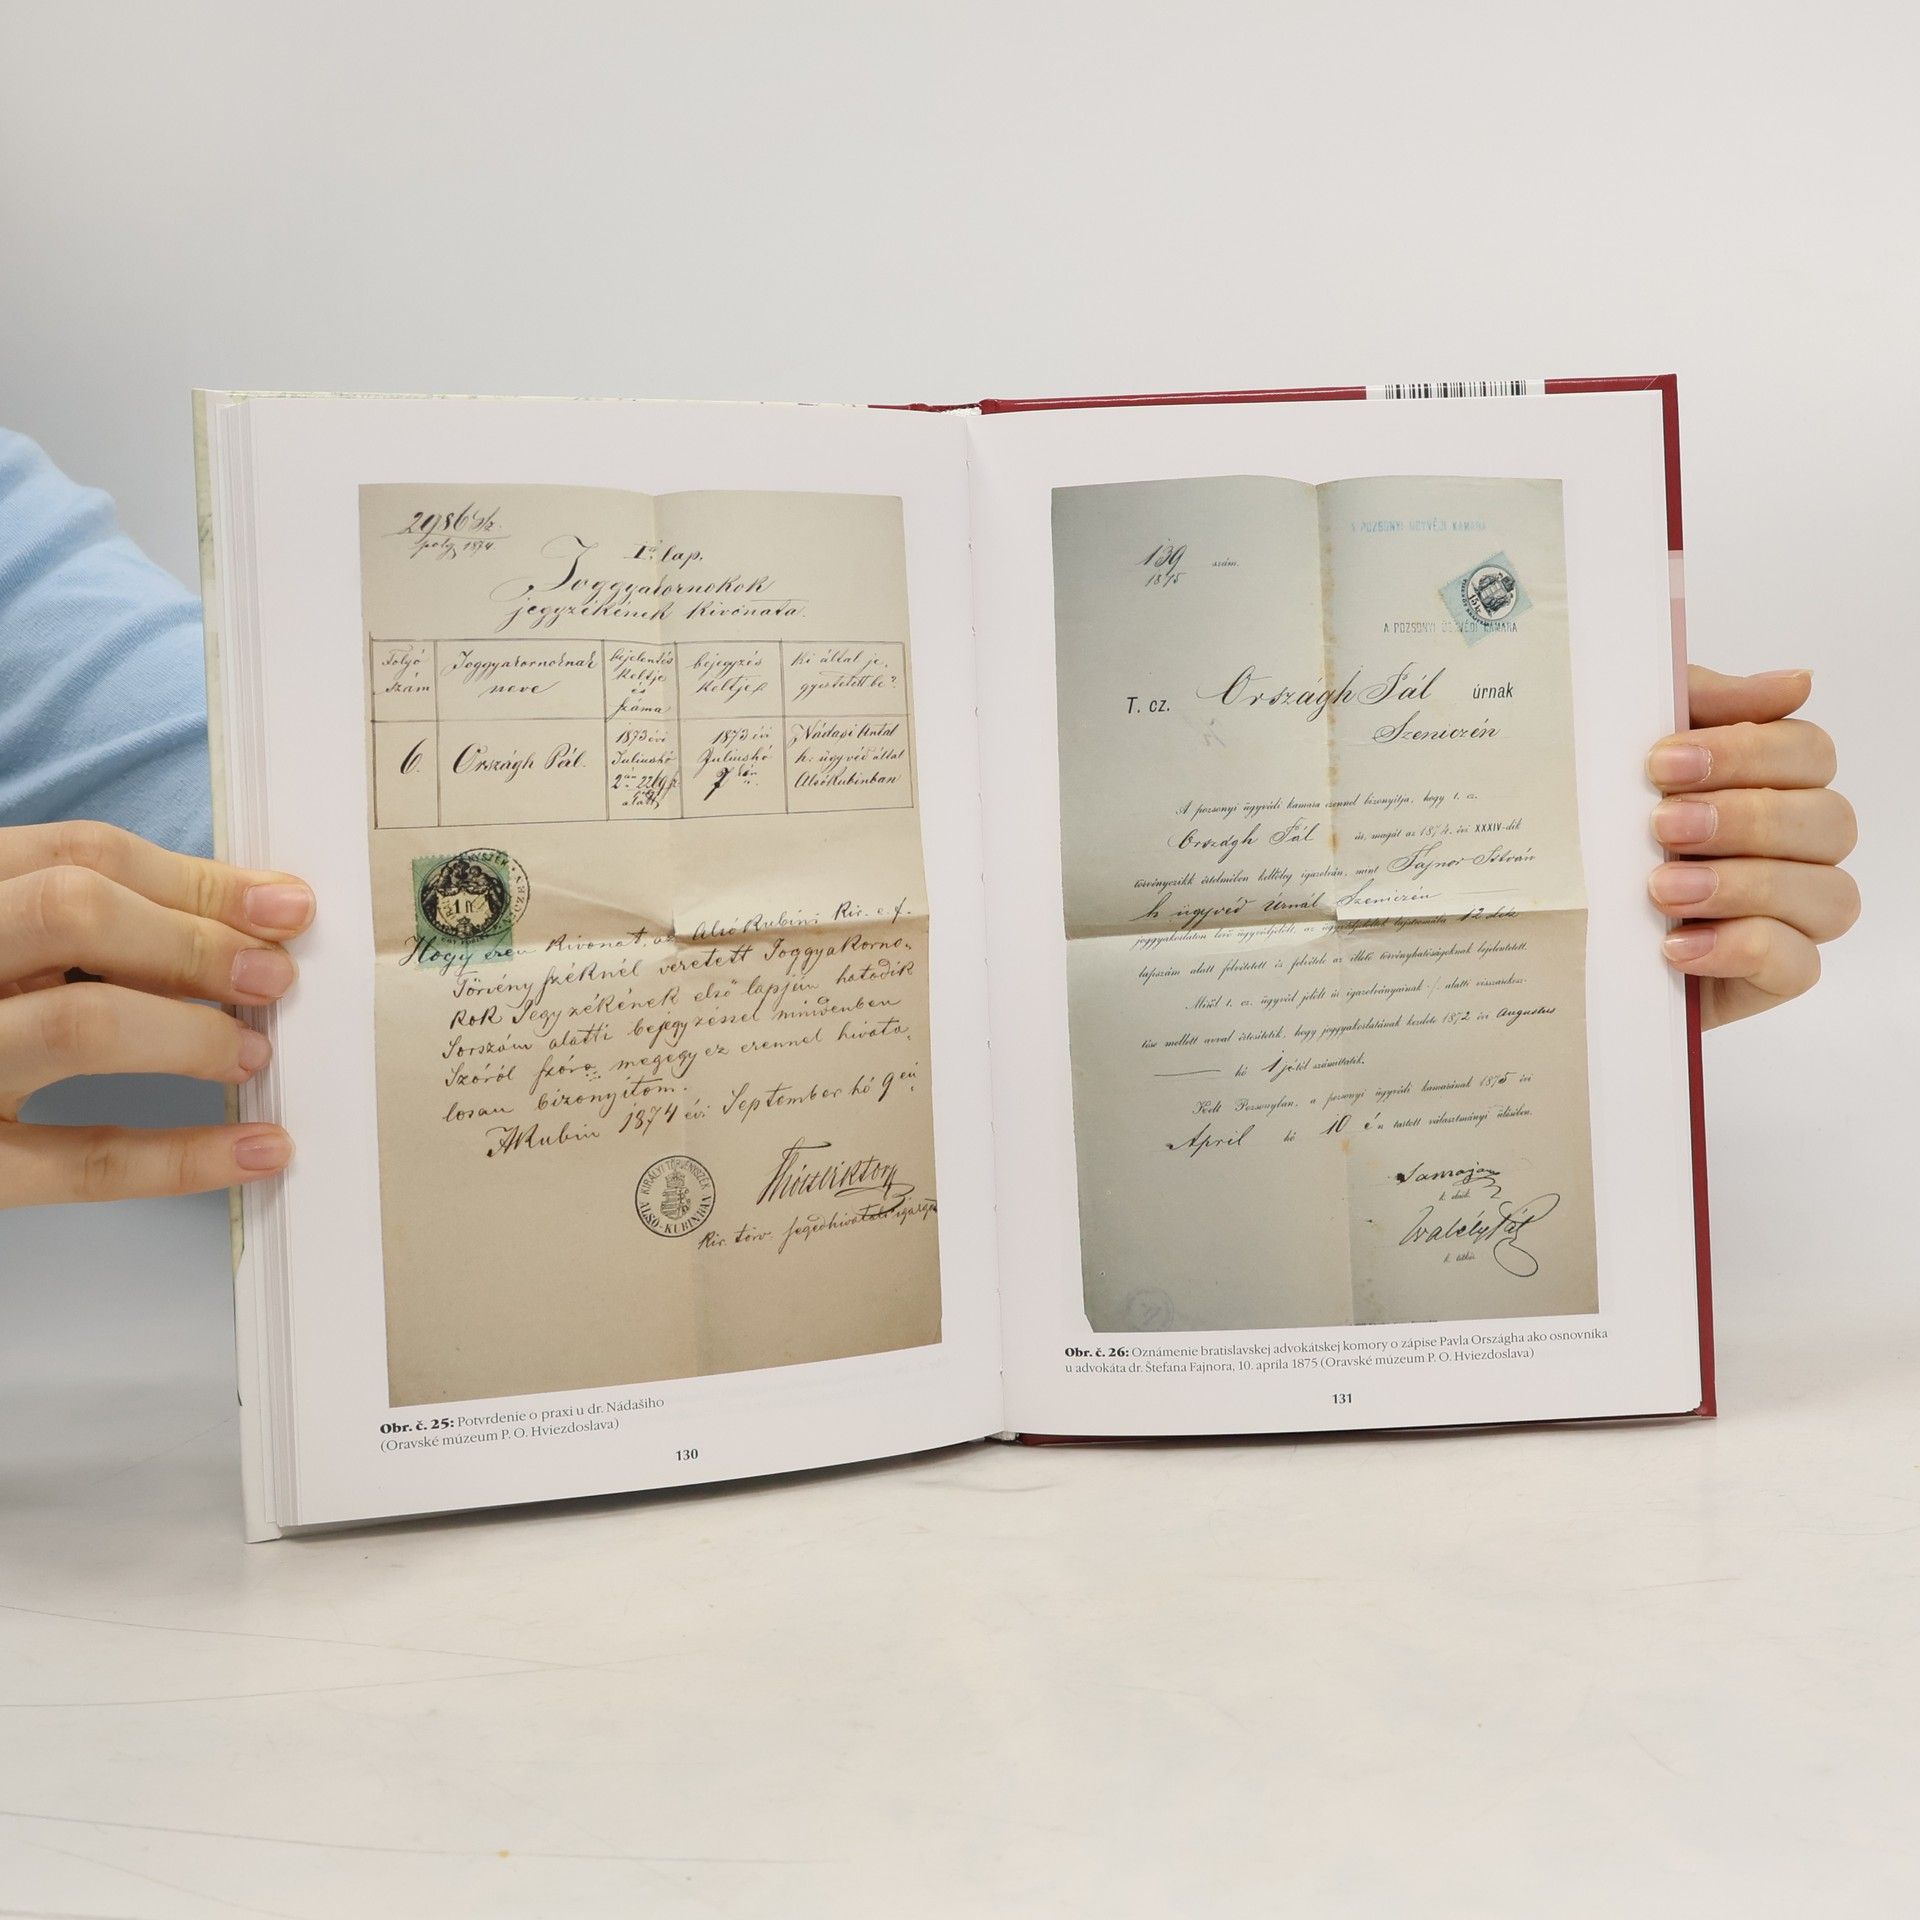 2986 Sz.
polg 1874.
I. lap.
Joggyakornokok
jegyzékének kivonata.
Folyó szám
Joggyakornoknak neve
bejelentés keltje és száma
bejegyzés keltje
Ki által je-
gyeztetett be?
6.
Országh Pál.
1873 évi Juliushó
alatt
1873 évi Juliushó 7
Nádasi Antal
h. ügyvéd által
Alsó Kubinban
1 ft
Hogy ezen kivonat, az Alsó Kubini Kir. e. f.
Törvényszéknél vezetett Joggyakorno-
kok Jegyzékének első lapján hatodik
Sorszám alatti bejegyzéssel mindenben
Szóról szóra megegyez ezennel hivata-
losan bizonyítom.
AKubin 1874 évi September hó 9 én
KIRÁLYI TÖRVÉNYSZÉK ALSÓ-KUBINBAN
Kir. törv. segedhivatali igazgató
Obr. č. 25: Potvrdenie o praxi u dr. Nádašiho
(Oravské múzeum P. O. Hviezdoslava)
130
A POZSONYI ÜGYVÉDI KAMARA
139 szám.
1875
15 kr.
A POZSONYI ÜGYVÉDI KAMARA
T. cz. Országh Pál úrnak
Szeniczén
A pozsonyi ügyvédi kamara ezennel bizonyítja, hogy t. cz.
Országh Pál úr, magát az 1874. évi XXXIV-dik
törvényczikk értelmében kellőleg igazolván, mint Fajnor István
h ügyvéd Urnál Szeniczén
joggyakorlaton levő ügyvédjelölt, az ügyvédjelöltek lajstromába 12 dik
lapszám alatt felvétetett és felvétele az illető törvényhatóságoknak bejelentetett.
Miről t. cz. ügyvéd jelölt úr igazolványainak ·/. alatti visszaküld-
tése mellett avval értesíttetik, hogy joggyakorlatának kezdete 1872 évi Augustus
hó 1 jétől számíttatik.
Kelt Pozsonyban, a pozsonyi ügyvédi kamarának 1875 évi
April hó 10 én tartott választmányi ülésében.
k. elnök.
k. titkár
Obr. č. 26: Oznámenie bratislavskej advokátskej komory o zápise Pavla Országha ako osnovníka
u advokáta dr. Štefana Fajnora, 10. apríla 1875 (Oravské múzeum P. O. Hviezdoslava)
131